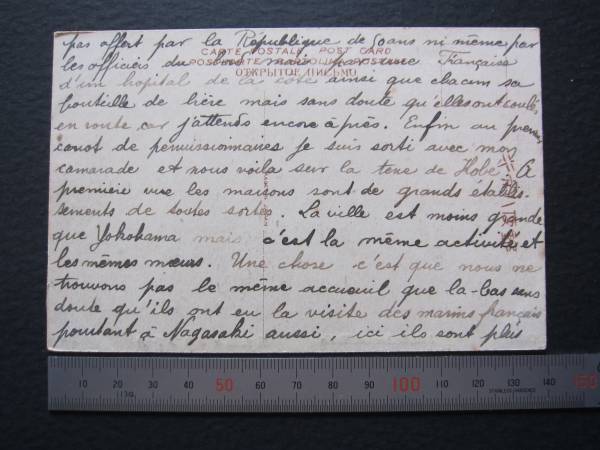 pas offert par la République de 50 ans ni même par
CARTE POSTALE. POST CARD
les officiers du bord mais par une Française
ОТКРЫТОЕ ПИСЬМО
d'un hopital de la cote ainsi que chacun sa
bouteille de bière mais sans doute qu'elles ont coulés
en route car j'attends encore après. Enfin au premier
canot de permissionnaires je suis sorti avec mon
camarade et nous voila sur la terre de Kobé. A
première vue les maisons sont de grands établis-
sements de toutes sortes. La ville est moins grande
que Yokohama mais c'est la même activité et
les mêmes mœurs. Une chose c'est que nous ne
trouvons pas le même accueuil que la-bas sans
doute qu'ils ont eu la visite des marins français
pourtant à Nagasaki aussi, ici ils sont plus
10 20 30 40 50 60 70 80 90 100 110 120 130 140 150